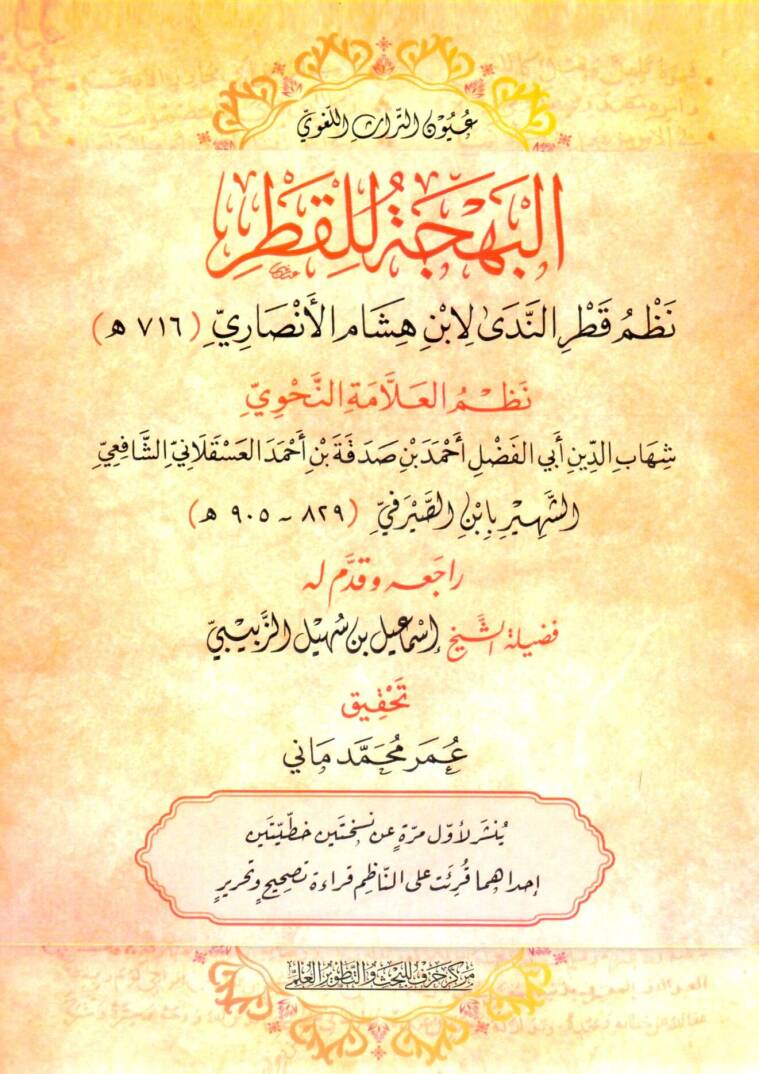 عُيُوْن التَّراثِ اللُّغَويِّ
البَهْجَةُ لِلقَطْرِ
نَظْمُ قَطْرِ النَّدَىٰ لِابْنِ هِشَامِ الأَنْصَارِيِّ (٧١٦ ھ)
نَظْمُ العَلَّامَةِ النَّحْوِيِّ
شِهَابِ الدِّينِ أَبي الفَضْلِ أَحْمَدَ بْنِ صَدَقَةَ بْنِ أَحْمَدَ العَسْقَلَانيِّ الشَّافِعِيِّ
الشَّهِيْرِ بِابْنِ الصَّيْرَفيِّ (٨٢٩ ~ ٩٠٥ ھ)
راجَعه وقدَّم له
فضيلة الشَّيخ إسْماعيل بن سُهيْل الزَّبيْبيّ
تَحْقِيق
عُمَر مُحَمَّد مَاني
يُنشَر لأوّل مرّةٍ عن نسختَين خطّيّتَين
إحداهما قُرِئَت على النّاظِم قراءة تصحِيحٍ وتحريرٍ
مركز حرف للبحث والتطوير العلمي